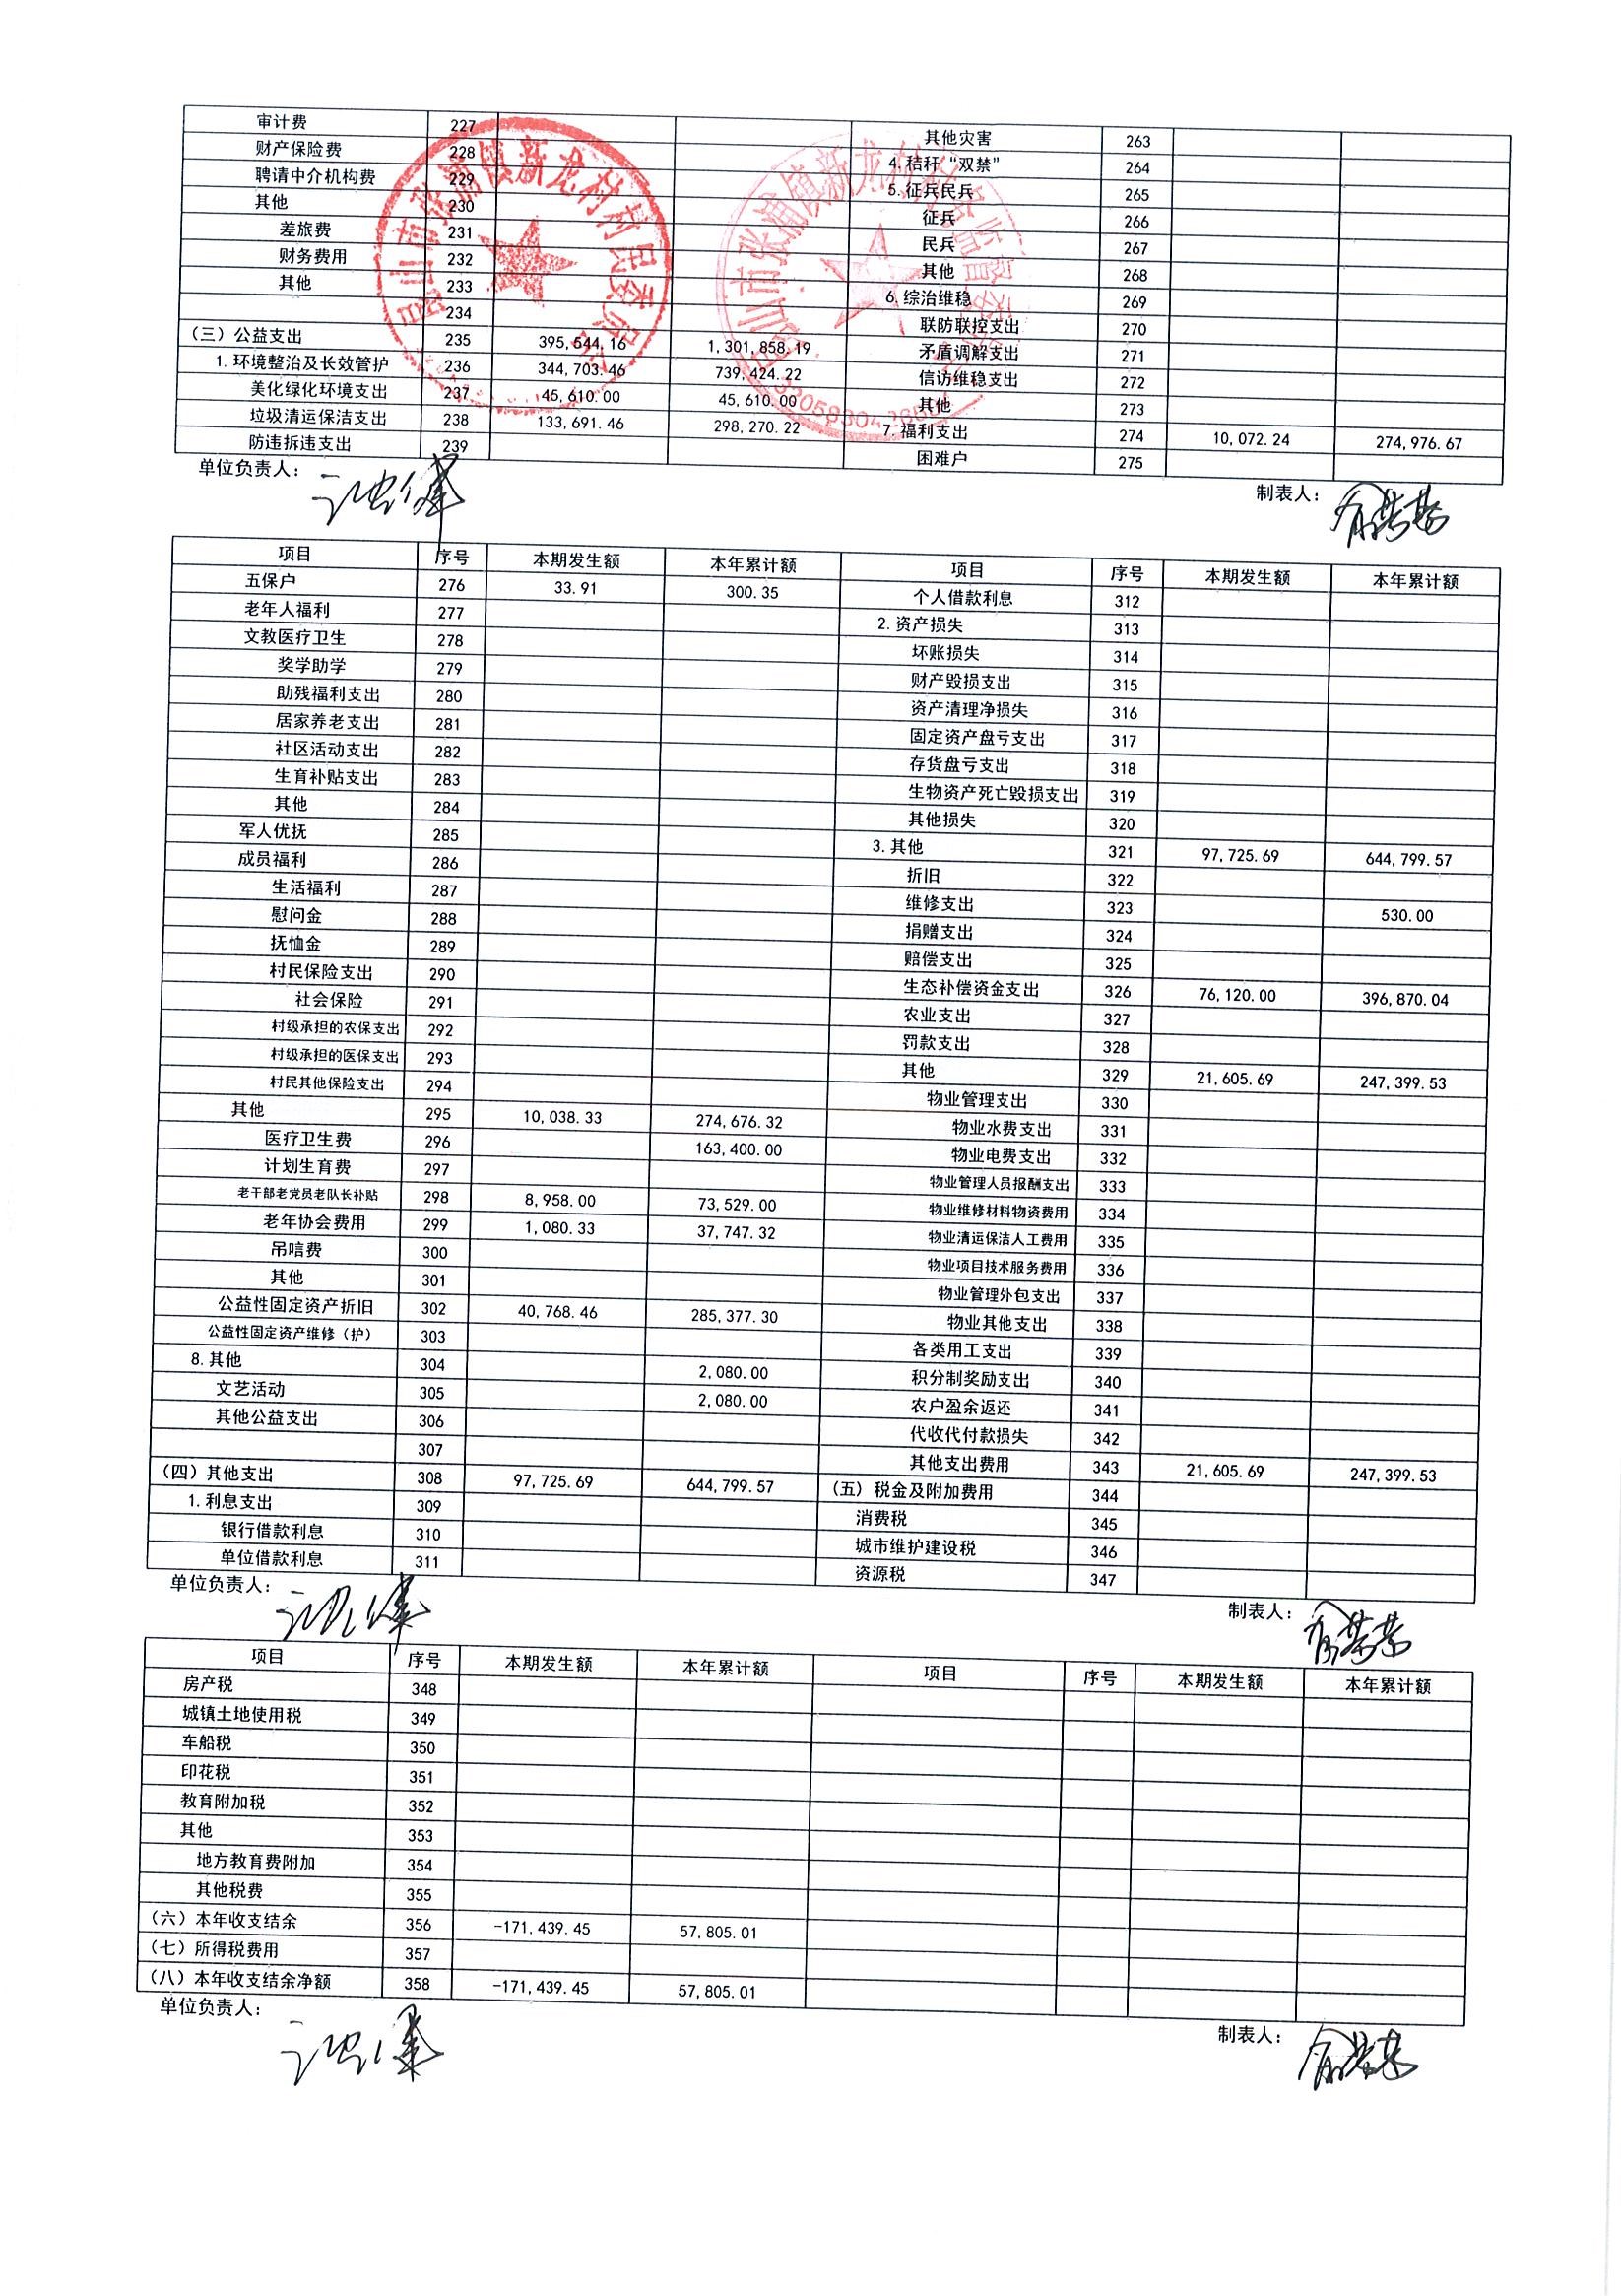 审计费 227 其他灾害 263
财产保险费 228 4.秸秆“双禁” 264
聘请中介机构费 229 5.征兵民兵 265
其他 230 征兵 266
差旅费 231 民兵 267
财务费用 232 其他 268
其他 233 6.综治维稳 269
234 联防联控支出 270
（三）公益支出 235 395,544.16 1,301,858.19 矛盾调解支出 271
1.环境整治及长效管护 236 344,703.46 739,424.22 信访维稳支出 272
美化绿化环境支出 237 45,610.00 45,610.00 其他 273
垃圾清运保洁支出 238 133,691.46 298,270.22 7.福利支出 274 10,072.24 274,976.67
防违拆违支出 239 困难户 275
昆山市张浦镇新龙村村民委员会
昆山市张浦镇新龙村
单位负责人： 制表人：
项目 序号 本期发生额 本年累计额 项目 序号 本期发生额 本年累计额
五保户 276 33.91 300.35 个人借款利息 312
老年人福利 277 2.资产损失 313
文教医疗卫生 278 坏账损失 314
奖学助学 279 财产毁损支出 315
助残福利支出 280 资产清理净损失 316
居家养老支出 281 固定资产盘亏支出 317
社区活动支出 282 存货盘亏支出 318
生育补贴支出 283 生物资产死亡毁损支出 319
其他 284 其他损失 320
军人优抚 285 3.其他 321 97,725.69 644,799.57
成员福利 286 折旧 322
生活福利 287 维修支出 323 530.00
慰问金 288 捐赠支出 324
抚恤金 289 赔偿支出 325
村民保险支出 290 生态补偿资金支出 326 76,120.00 396,870.04
社会保险 291 农业支出 327
村级承担的农保支出 292 罚款支出 328
村级承担的医保支出 293 其他 329 21,605.69 247,399.53
村民其他保险支出 294 物业管理支出 330
其他 295 10,038.33 274,676.32 物业水费支出 331
医疗卫生费 296 163,400.00 物业电费支出 332
计划生育费 297 物业管理人员报酬支出 333
老干部老党员老队长补贴 298 8,958.00 73,529.00 物业维修材料物资费用 334
老年协会费用 299 1,080.33 37,747.32 物业清运保洁人工费用 335
吊唁费 300 物业项目技术服务费用 336
其他 301 物业管理外包支出 337
公益性固定资产折旧 302 40,768.46 285,377.30 物业其他支出 338
公益性固定资产维修（护） 303 各类用工支出 339
8.其他 304 2,080.00 积分制奖励支出 340
文艺活动 305 2,080.00 农户盈余返还 341
其他公益支出 306 代收代付款损失 342
307 其他支出费用 343 21,605.69 247,399.53
（四）其他支出 308 97,725.69 644,799.57 （五）税金及附加费用 344
1.利息支出 309 消费税 345
银行借款利息 310 城市维护建设税 346
单位借款利息 311 资源税 347
单位负责人： 制表人：
项目 序号 本期发生额 本年累计额 项目 序号 本期发生额 本年累计额
房产税 348
城镇土地使用税 349
车船税 350
印花税 351
教育附加税 352
其他 353
地方教育费附加 354
其他税费 355
（六）本年收支结余 356 -171,439.45 57,805.01
（七）所得税费用 357
（八）本年收支结余净额 358 -171,439.45 57,805.01
单位负责人： 制表人：